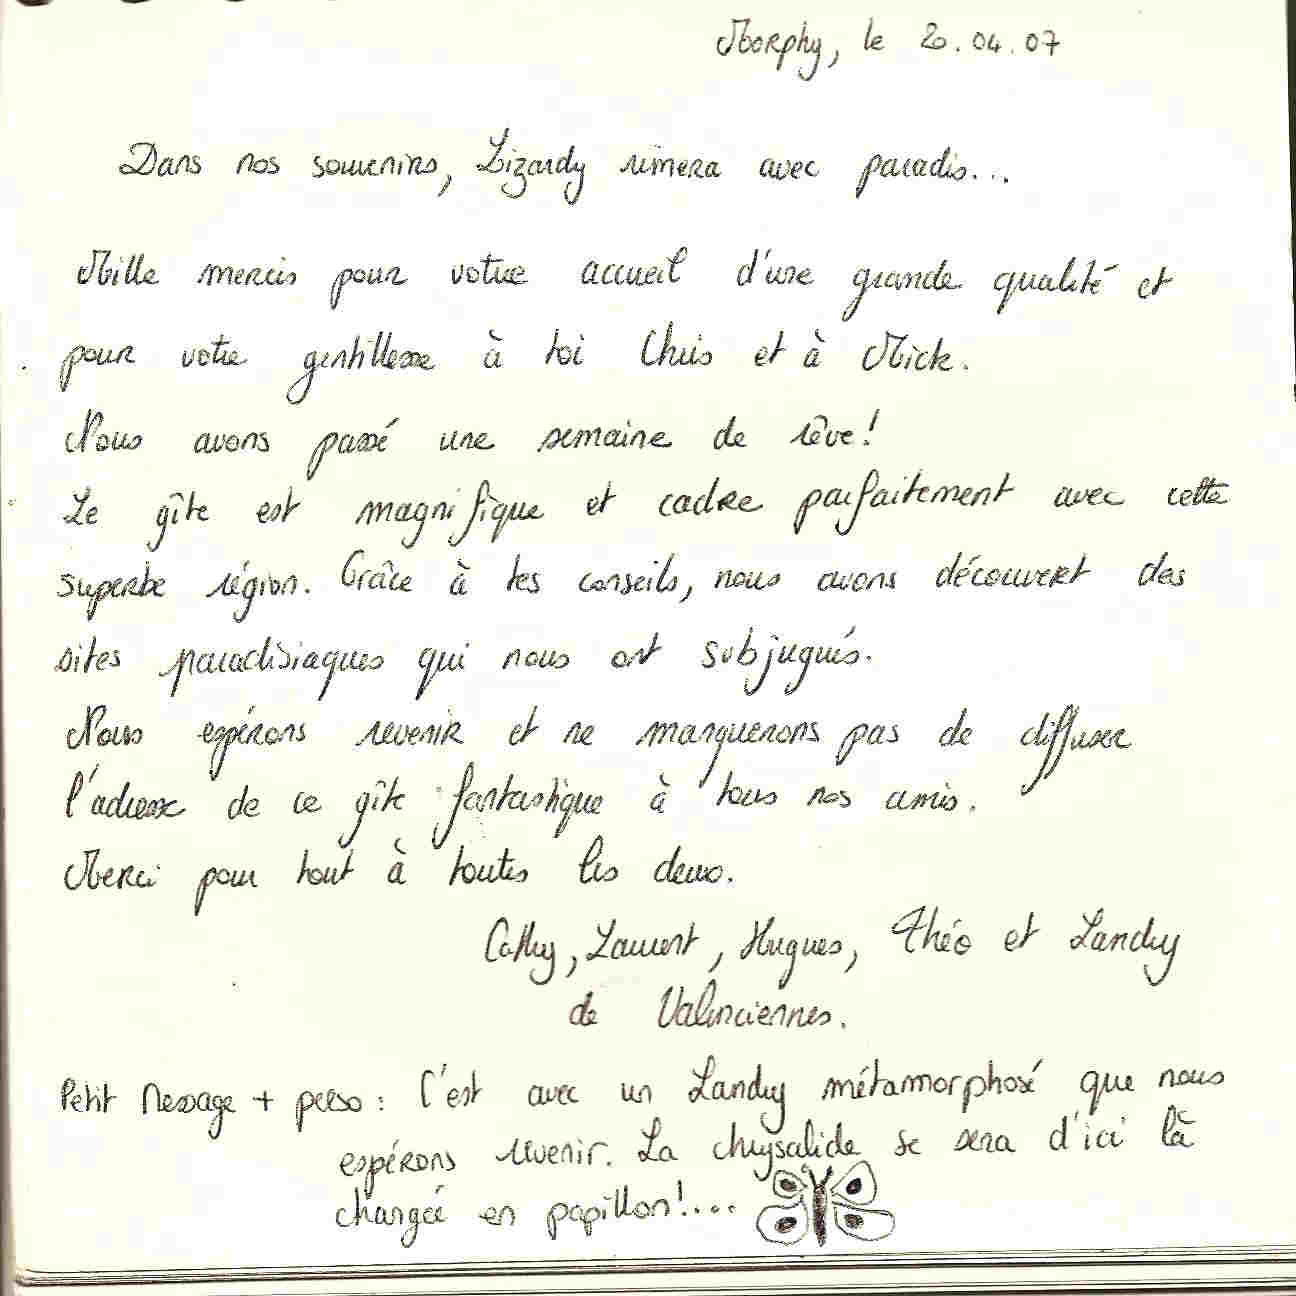 Morphy, le 20.04.07
Dans nos souvenirs, Lizardy rimera avec paradis...
Mille mercis pour votre accueil d'une grande qualité et
pour votre gentillesse à toi Chris et à Mick.
Nous avons passé une semaine de rêve!
Le gîte est magnifique et cadre parfaitement avec cette
superbe région. Grâce à tes conseils, nous avons découvert des
sites paradisiaques qui nous ont subjugués.
Nous espérons revenir et ne manquerons pas de diffuser
l'adresse de ce gîte fantastique à tous nos amis.
Merci pour tout à toutes les deux.
Cathy, Laurent, Hugues, Théo et Landry
de Valenciennes.
Petit Message + perso : C'est avec un Landry métamorphosé que nous
espérons revenir. La chrysalide se sera d'ici là
changée en papillon!....